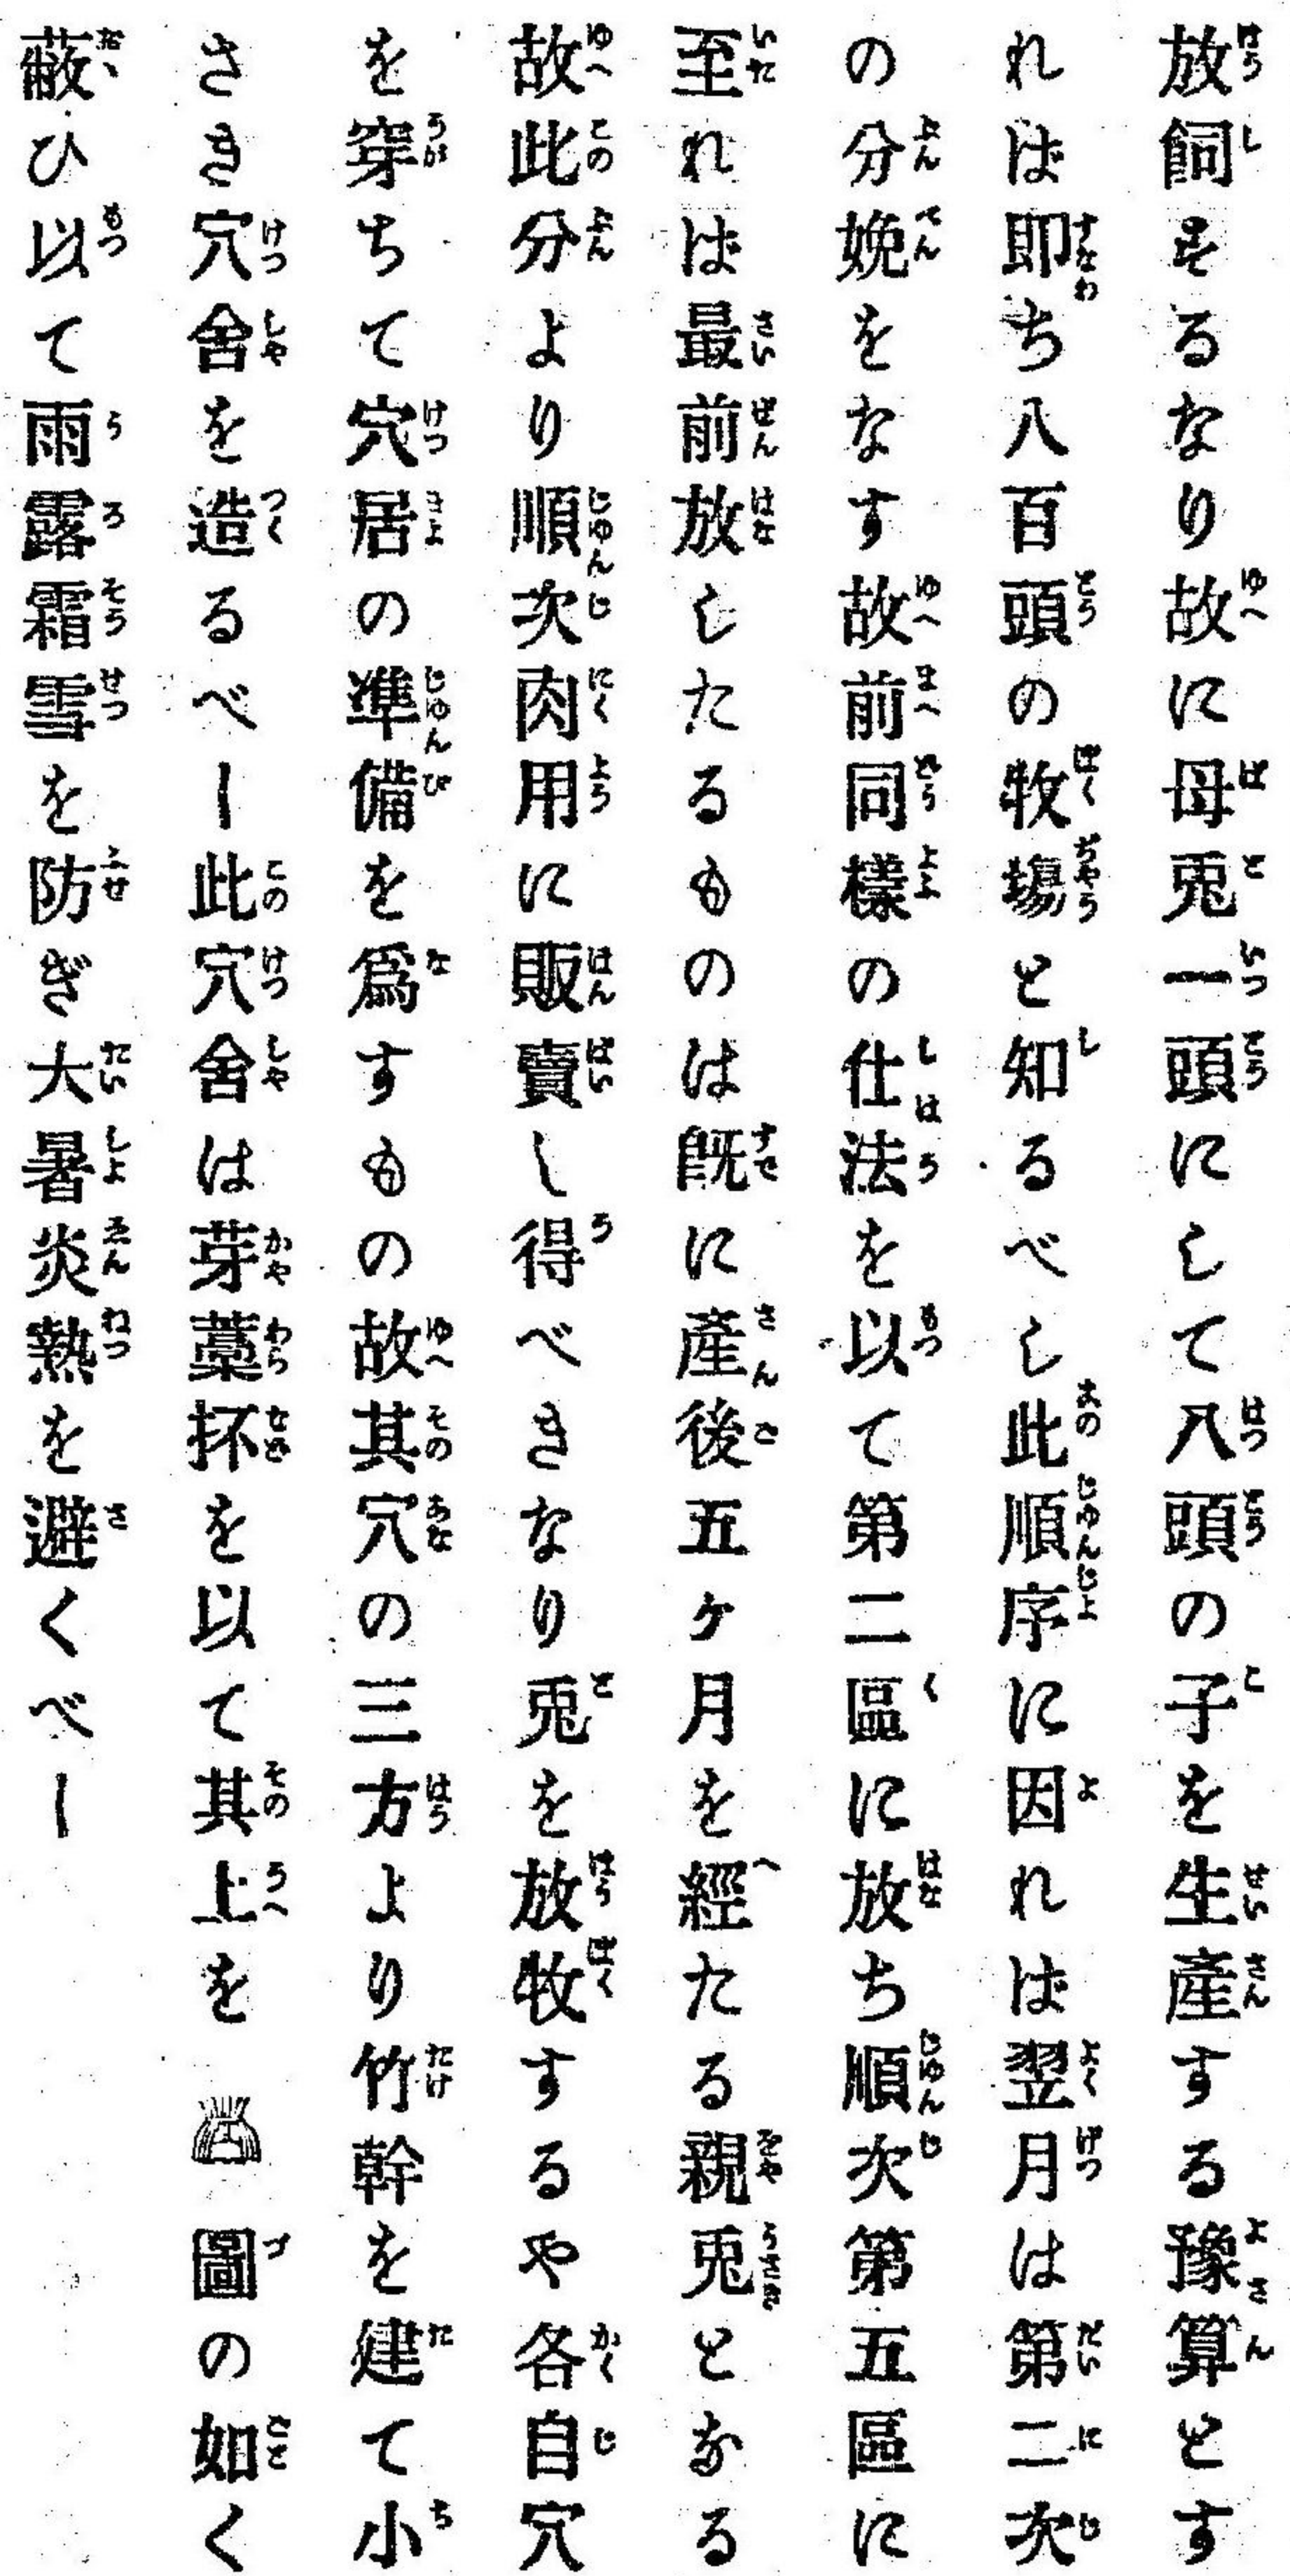 放飼するなり故に母兎一頭にして八頭の子を生産する豫算とす
れば即ち八百頭の牧塲と知るべし此順序に因れば翌月は第二次
の分娩をなす故前同樣の仕法を以て第二區に放ち順次第五區に
至れば最前放したるものは既に產後五ヶ月を經たる親兎となる
故此分より順次肉用に販賣し得べきなり兎を放牧するや各自穴
を穿ちて穴居の準備を爲すもの故其穴の三方より竹幹を建て小
さき穴舍を造るべし此穴舍は芽藁抔を以て其上を圖の如く
蔽ひ以て雨露霜雪を防ぎ大暑炎熱を避くべし